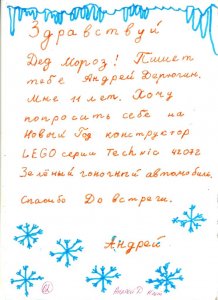 Здравствуй
Дед Мороз! Пишет
тебе Андрей Дерюгин.
Мне 11 лет. Хочу
попросить себе на
Новый Год конструктор
LEGO серии Technic 42072
Зелёный гоночный автомобиль.
Спасибо До встречи.
Андрей